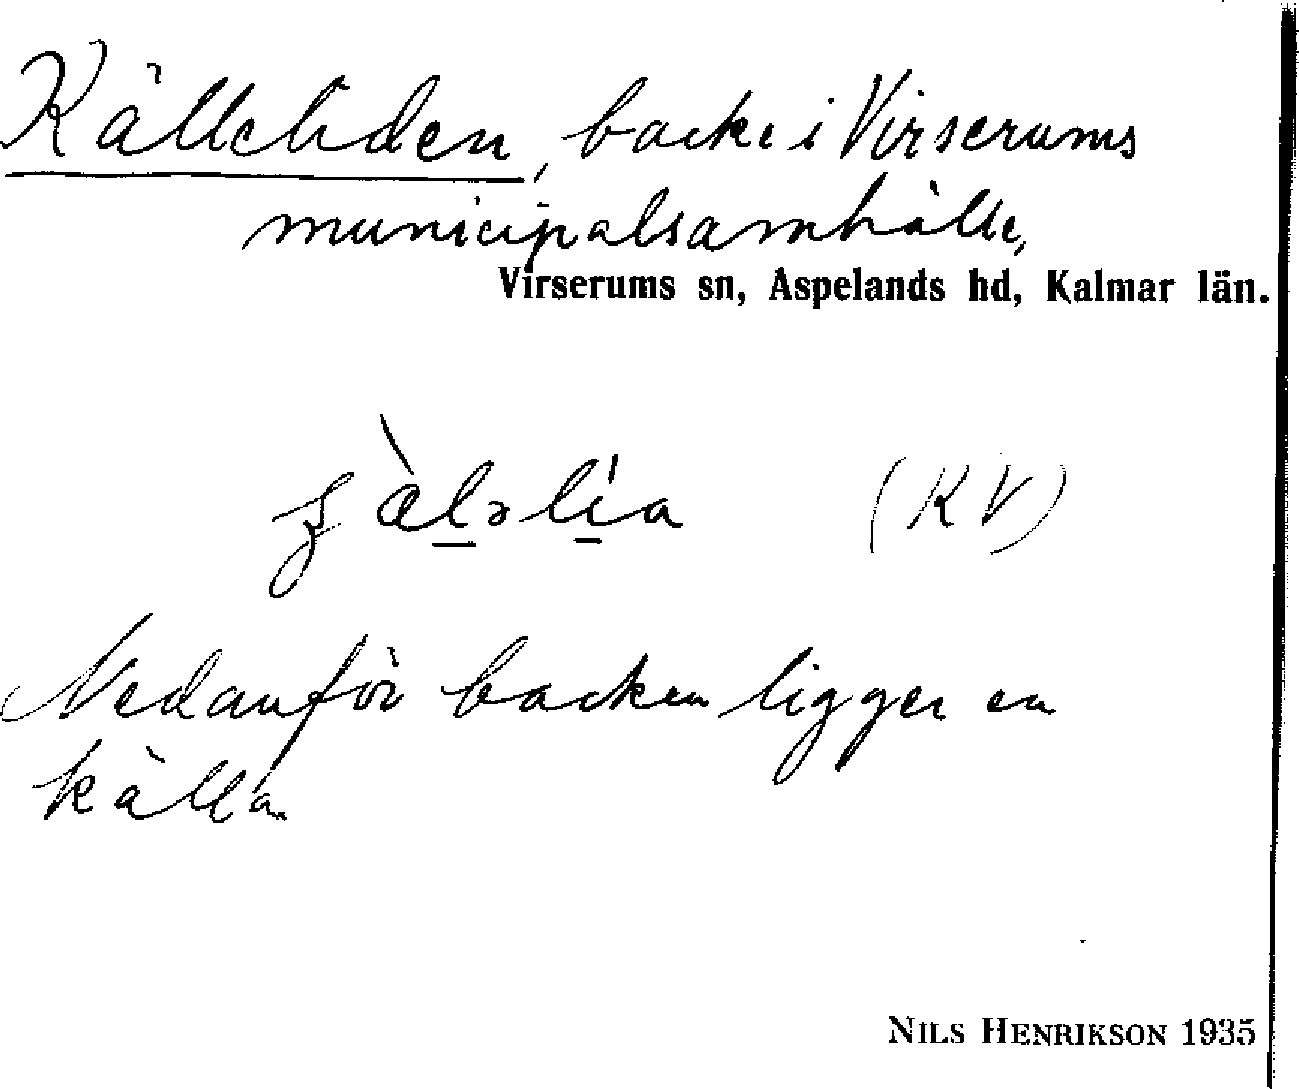 Källeliden, backe i Virserums
municipalsamhälle,
Virserums sn, Aspelands hd, Kalmar län.
(KV)
Nedanför backen ligger en
källa.
NILS HENRIKSON 1935